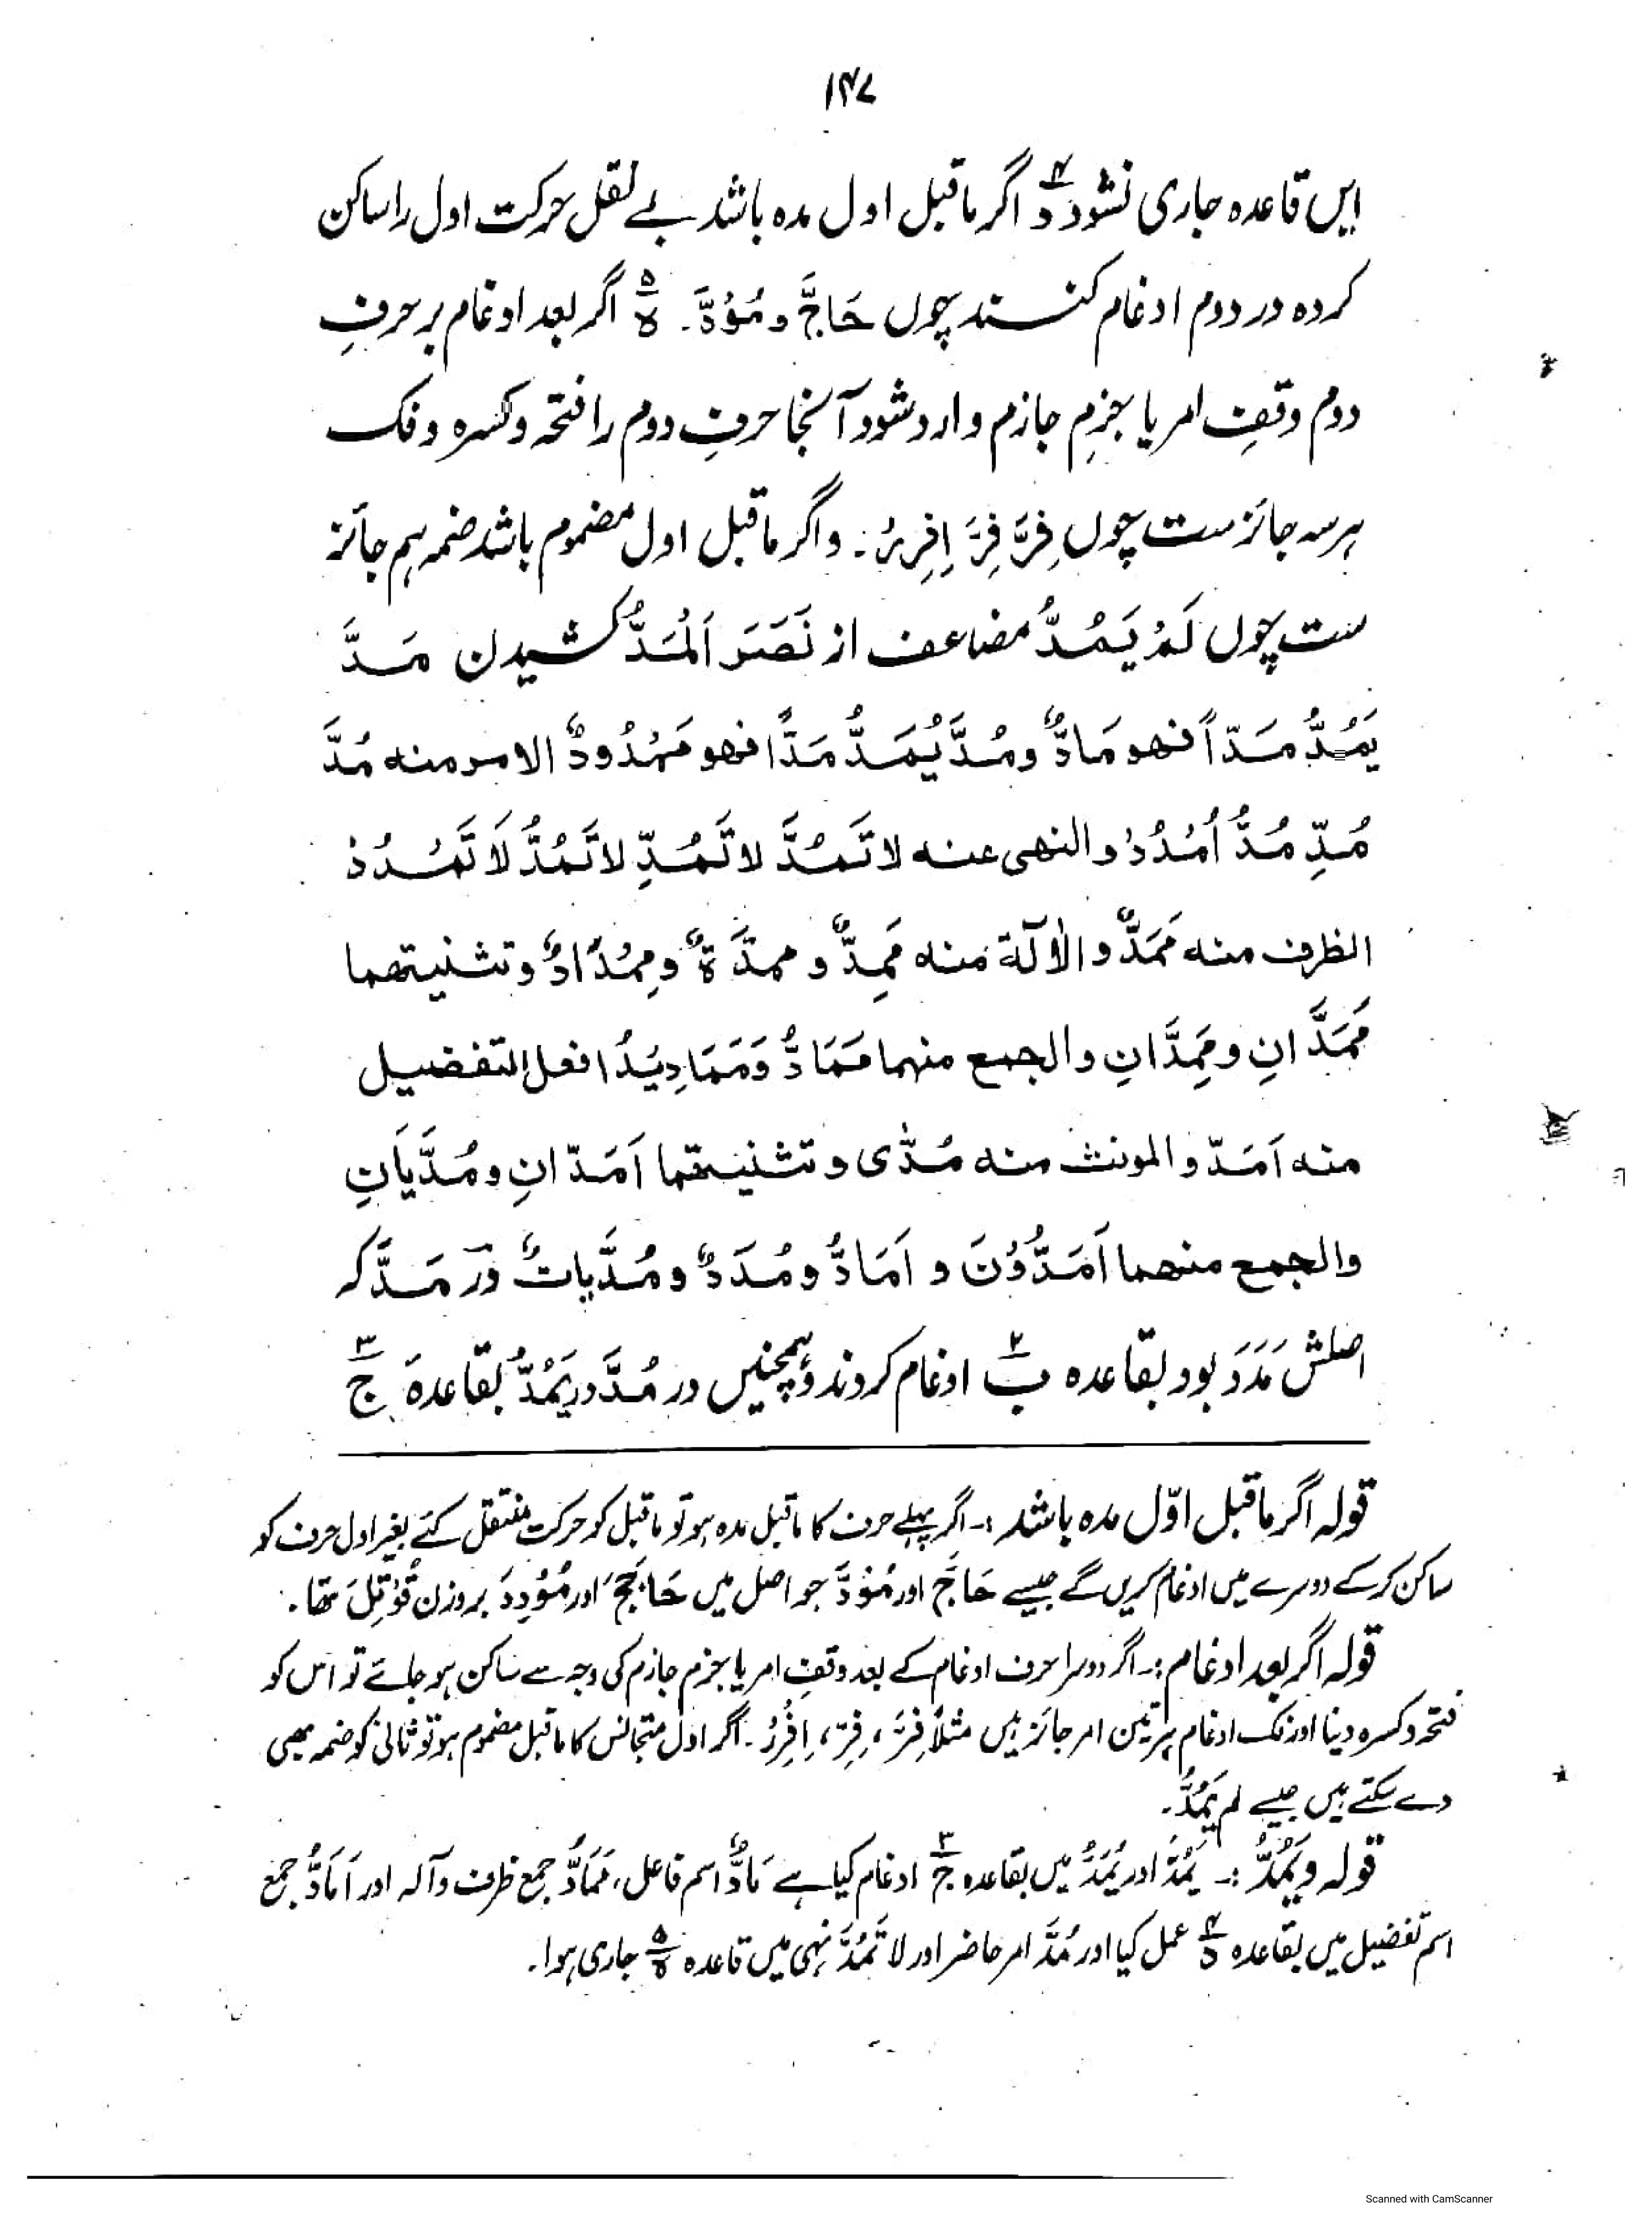 ۱۴۷
ایں قاعدہ جاری نشود ۴ د اگر ماقبل اول مدہ باشد بے نقل حرکت اول را ساکن
کردہ در دوم ادغام کنند چوں حَاجَّ و مُوْدَّ۔ ۵ ہ اگر بعد ادغام بر حرفِ
دوم وقفِ امر یا جزمِ جازم وارد شود آنجا حرفِ دوم را فتحہ و کسرہ و فک
ہر سہ جائز ست چوں فِرَّ فِرِّ اِفْرِرْ۔ و اگر ماقبل اول مضموم باشد ضمہ ہم جائز
ست چوں لَمْ يَمُدُّ مضاعف از نَصَرَ اَلْمَدُّ کشیدن مَدَّ
يَمُدُّ مَدّاً فهو مَادٌّ ومُدَّ يُمَدُّ مَدّاً فهو مَمْدُودٌ الامر منه مُدَّ
مُدِّ مُدُّ اُمْدُدْ والنهى عنه لا تَمُدَّ لا تَمُدِّ لا تَمُدُّ لَا تَمْدُدْ
الظرف منه مَمَدٌّ والآلة منه مِمَدٌّ و ممدَّةٌ ومِمْدَادٌ وتثنيتهما
مَمَدَّانِ ومِمَدَّانِ والجمع منهما مَمَادُّ وَمَمَادِيْدُ افعل التفضيل
منه اَمَدّ والمونث منه مُدّٰى وتثنيتهما اَمَدّانِ ومُدَّيَانِ
والجمع منهما اَمَدُّوْنَ و اَمَادُّ ومُدَدٌ ومُدَّيَاتٌ در مَدَّ کہ
اصلش مَدَدَ بود بقاعدہ ۲ ب ادغام کردند و ہمچنیں در مُدَّ در يَمُدُّ بقاعدہ ۳ ج
قولہ اگر ماقبل اوّل مدہ باشد :۔ اگر پہلے حرف کا ماقبل مدہ ہو تو ماقبل کو حرکت منتقل کئے بغیر اول حرف کو
ساکن کر کے دوسرے میں ادغام کریں گے جیسے حَاجَّ اور مُوْدَّ جو اصل میں حَاجَجَ اور مُوْدِدَ بروزن قُوْتِلَ تھا۔
قولہ اگر بعد ادغام :۔ اگر دوسرا حرف ادغام کے بعد وقفِ امر یا بجزم جازم کی وجہ سے ساکن ہو جائے تو اس کو
فتحہ و کسرہ دینا اور فک ادغام ہر تین امر جائز ہیں مثلاً فِرَّ، فِرِّ، اِفْرِرْ۔ اگر اول متجانس کا ماقبل مضموم ہو تو ثانی کو ضمہ بھی
دے سکتے ہیں جیسے لم يَمُدُّ۔
قولہ و يَمُدُّ :۔ يَمُدُّ اور يُمَدُّ میں بقاعدہ ۳ ج ادغام کیا ہے مَادٌّ اسم فاعل، مَمَادُّ جمع ظرف و آلہ اور اَمَادُّ جمع
اسم تفضیل میں بقاعدہ ۴ د عمل کیا اور مُدَّ امر حاضر اور لا تَمُدَّ نہی میں قاعدہ ۵ ہ جاری ہوا۔
Scanned with CamScanner